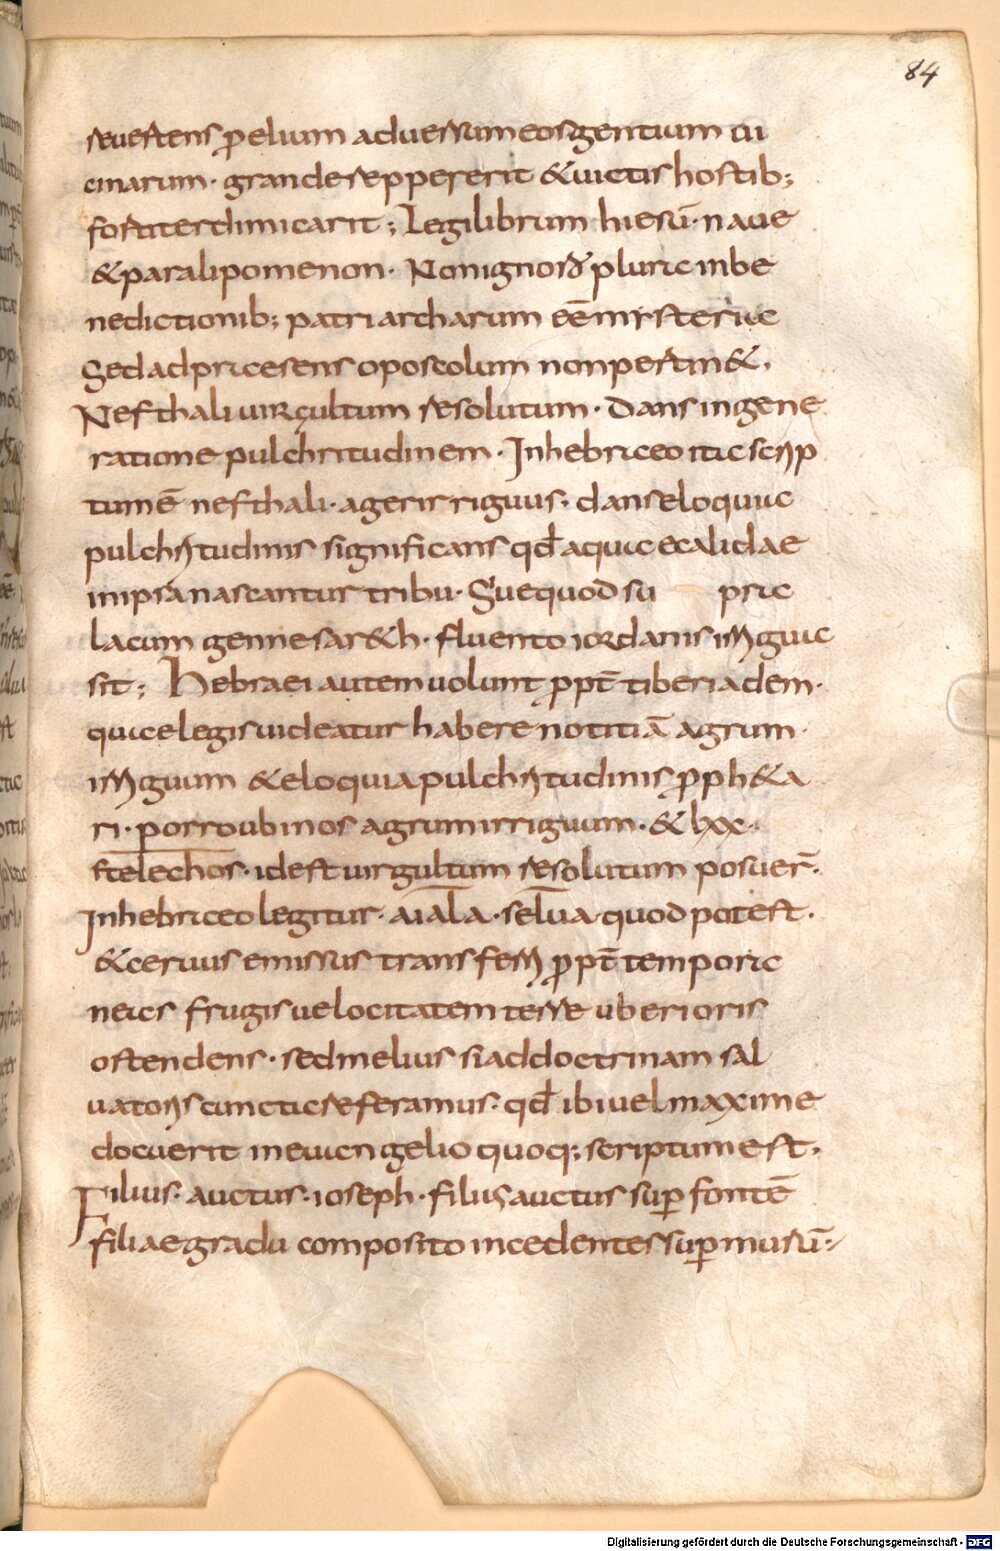 84
reuertens p̄elium aduersum eos gentium ui
cinarum· grande reppererit & uictis hostib;
fortiter dimicarit; Legi librum hiesū· naue
& paralipomenon· Non ignorō plura in be
nedictionib; patriarcharum eē mysteria
Sed ad praesens oposcolum non pertin&.
Nefthali uirgultum resolutum· dans in gene
ratione pulchritudinem· In hebraeo ita scrip
tum ē nefthali· ager irriguus· dans eloquia
pulchritudinis significans qd̄ aquae calidae
in ipsa nascantur tribu· Siue quod su pra
lacum gennesar&h· fluento iordanis irrigua
sit; Hebraei autem uolunt ꝓpt̄ tiberiadem·
quae legis uideatur habere notitiā agrum·
irriguum & eloquia pulchritudinis ꝓph&a
ri· porro ubi nos agrum irriguum· & lxx·
stelechos· id est uirgultum resolutum posuer̄·
In hebraeo legitur· aiala· selua quod potest·
& ceruus emissus transferri ꝓpt̄ tempora
neas frugis uelocitatem terre uberioris
ostendens· sed melius si ad doctrinam sal
uatoris cuncta referamus· qd̄ ibi uel maxime
docuerit in euangelio quoq; scriptum est·
Filius· auctus· ioseph· filius auctus suꝑ fontē
filiae gradu composito incedentes suꝑ murū·
Digitalisierung gefördert durch die Deutsche Forschungsgemeinschaft - DFG